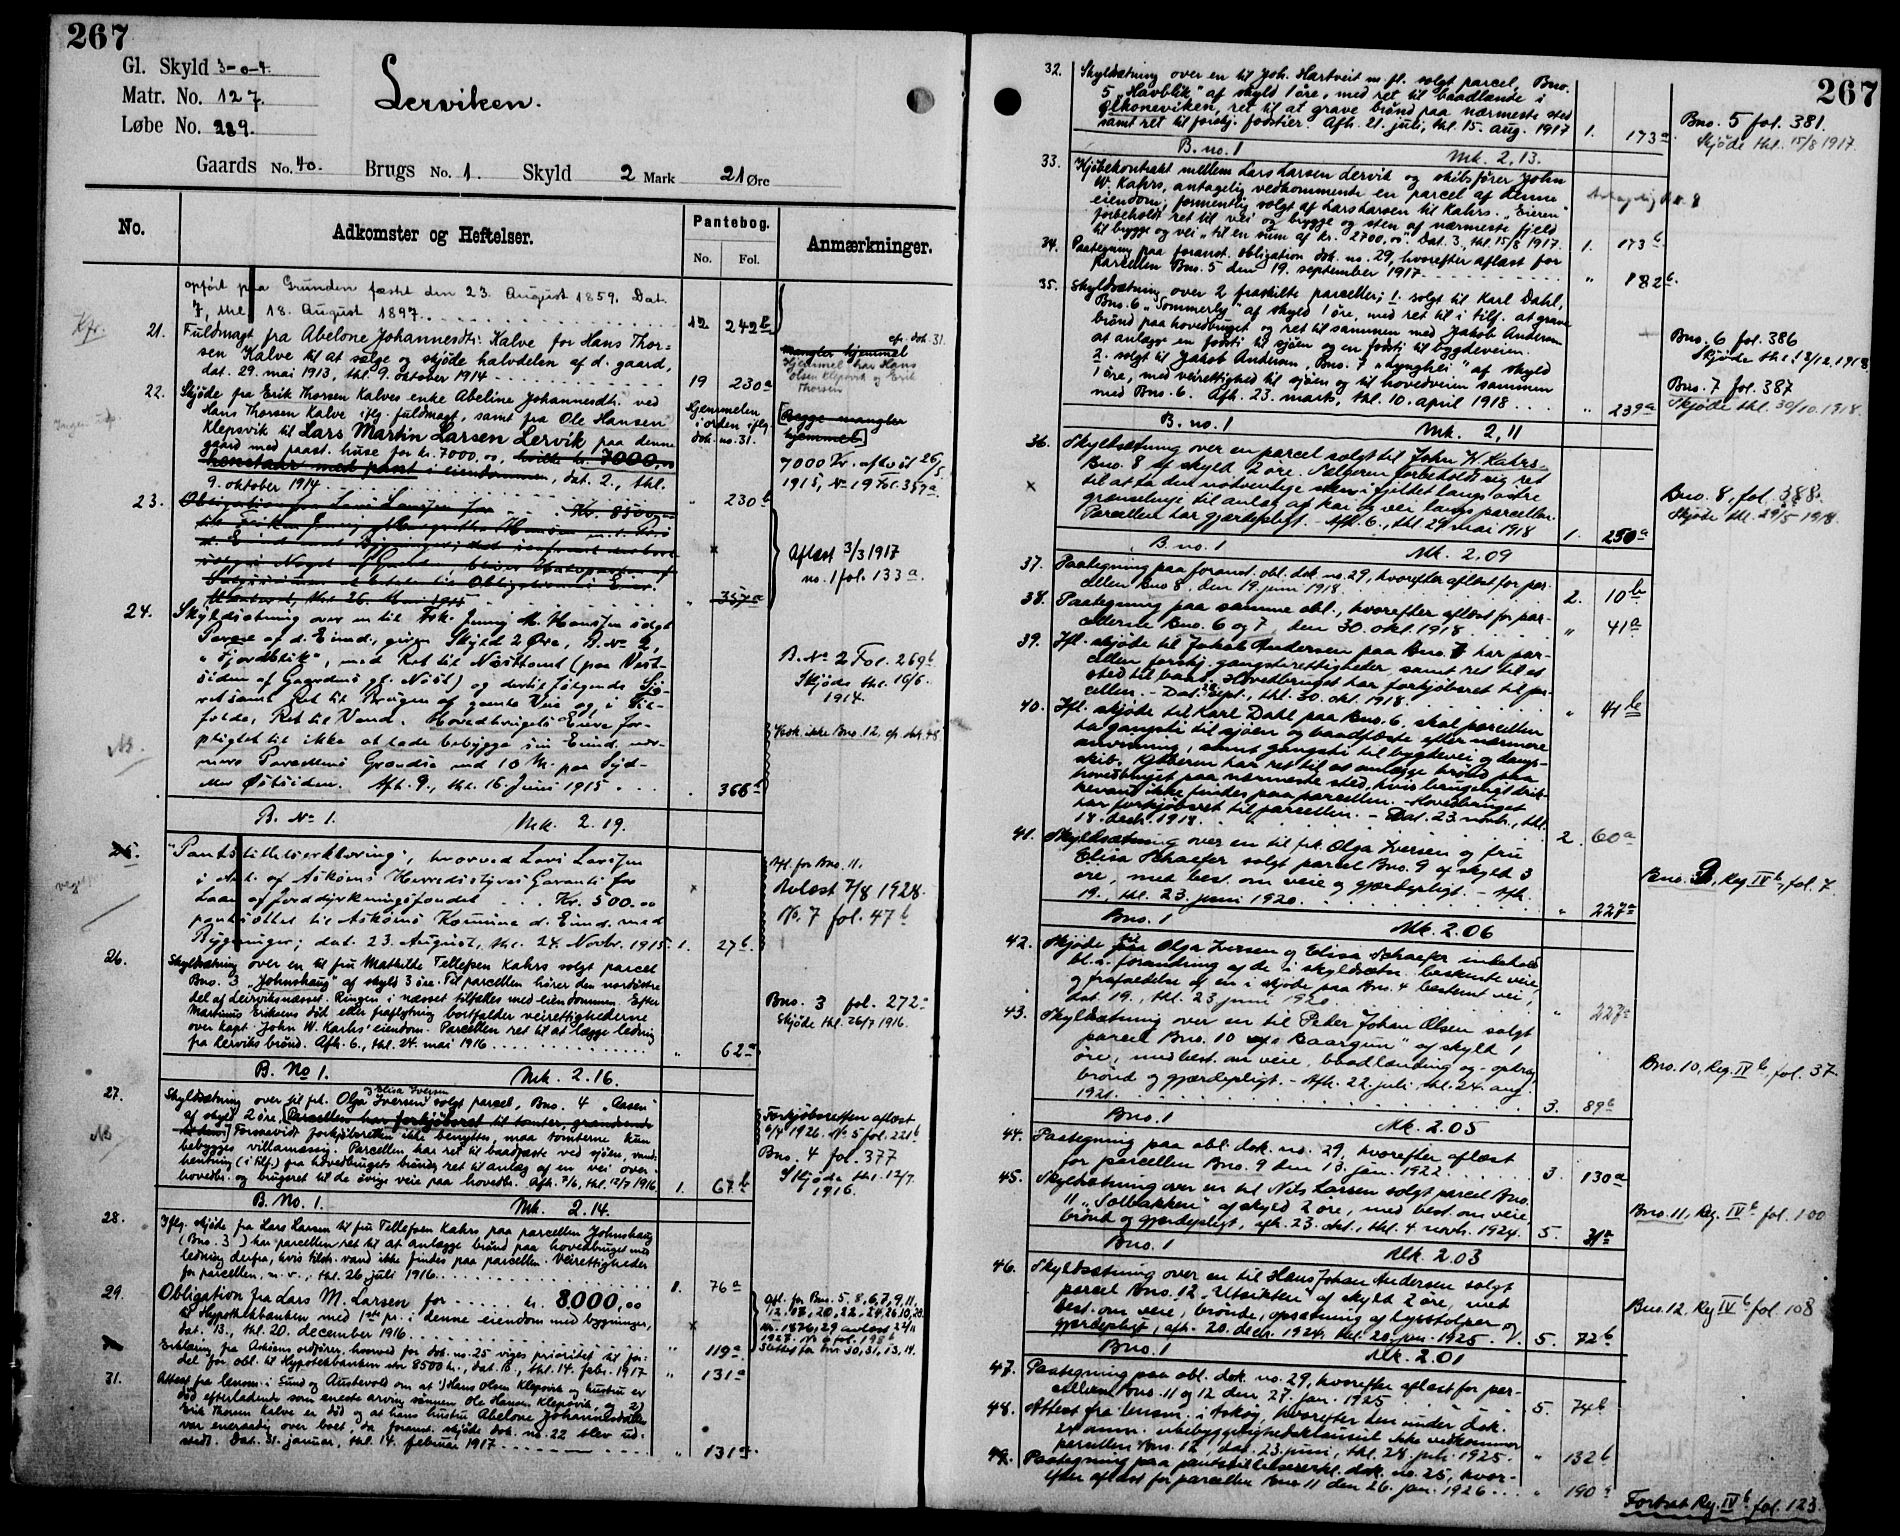 267
Gl. Skyld 3-0-4.
Matr. No. 127.
Løbe No. 229.
Lerviken.
Gaards No. 40. Brugs No. 1. Skyld 2 Mark 21 Øre
No. Adkomster og Heftelser. Pantebog. Anmærkninger.
No. Fol.
opført paa Grunden fæstet den 23. August 1859. Dat.
7, thl. 18. August 1897. 12 242b
21. Fuldmagt fra Abelone Johannesdtr. Kalve for Hans Thor-
sen Kalve til at sælge og skjøde halvdelen af d. gaard,
dat. 29. mai 1913, thl. 9. oktober 1914 19 230a
cf. dok. 31.
mangler hjemmel
Hjemmel har Hans
Olsen Klepsvik og Erik
Thorsen
22. Skjøde fra Erik Thorsen Kalves enke Abeline Johannesdtr. ved
Hans Thorsen Kalve iflg. fuldmagt, samt fra Ole Hansen
Klepsvik til Lars Martin Larsen Lervik paa denne
gaard med paast. huse for kr. 7000,00, hvilke kr. 7000,00
henstaar med pant i eiendommen, dat. 2., thl.
9. oktober 1914 " 230b
Hjemmelen
i orden iflg.
dok. no. 31.
[Begge mangler
hjemmel]
7000 Kr. aflyst 26/5
1915, No 19 Fol. 357a.
23. Obligation fra Lars Larsen for Kr. 8500,00
357a
Aflæst 3/3 1917
no. 1 fol. 133a.
24. Skyldsætning over en til Frk. Jenny M. Hansen solgt
Parcel af d. Eiend., given Skyld 2 Øre, B. No 2,
"Fjordblik", med Ret til Nøsttomt (paa Vest-
siden af Gaardens gl. Nøst) og dertil følgende Sjø-
ret samt Ret til Brugen af gamle Veie og i Til-
fælde, Ret til Vand. Hovedbrugets Eiere for-
pligtet til ikke at lade bebygge sin Eiend. nær-
mere Parcellens Grændse end 10 M. paa Syd-
eller Østsiden. Afh. 9., thl. 16. Juni 1915. 366a
B. No 2 Fol. 269b
Skjøde thl. 16/6.
1914.
Vedk. ikke Bno. 12, cf. dok. 48
B. No 1. Mk. 2.19.
25. "Pantstillelseserklæring", hvorved Lars Larsen
i Anl. af Askøens Herredsstyres Garanti for
Laan af Jorddyrkningsfondet Kr. 500.00
pantsætter til Askøens Komune d. Eiend. med
Bygninger; dat. 23. August, thl. 24. Novbr. 1915 1. 27b.
Afl. for Bno. 11.
Avlæst 7/8 1928.
No. 7 fol. 47b
26. Skyldsætning over en til fru Mathilde Tellefsen Kahrs solgt parcel
Bno. 3 "Johnshaug" af skyld 3 øre. Til parcellen hører den nordøstre
del af Leirviksnæsset. Ringen i næsset tilfælles med eiendommen. Efter
Martinus Eriksens død eller fraflytning bortfalder veirettighederne
over kapt. John W. Karhs' eiendom. Parcellen ret til at lægge ledning
fra Lerviks brønd. Afh. 6., thl. 24. mai 1916 " 62a
Bno. 3 fol. 272a
Skjøde thl. 26/7 1916.
B. No 1. Mk. 2.16.
27. Skyldsætning over til frk. Olga Iversen og Elisa Iversen solgt parcel, Bno. 4 "Aasen"
af skyld 2 øre, [Parcellen har forkjøbsret til tomter, grændsende
til den.] Forsaavidt forkjøbsretten ikke benyttes, maa tomterne kun
bebygges villamæssig. Parcellen har ret til baadfæste ved sjøen, vand-
hentning (i tilf.) fra hovedbrugets brønd, ret til anlæg af en vei over
hovedbr. og brugsret til de øvrige veie paa hovedbr. Afh. 7/6, thl. 12/7 1916 1. 67b
Forkjøbsretten aflæst
6/4 1926. No 5 fol. 221b
Bno. 4 fol. 377
Skjøde thl. 12/7.
1916.
B. No. 1. Mk. 2.14.
28. Iflg. skjøde fra Lars Larsen til fru Tellefsen Kahrs paa parcellen Johnshaug
(Bno. 3) har parcellen ret til at anlægge brønd paa hovedbruget med
ledning derfra, hvis tilstr. vand ikke findes paa parcellen. Veirettigheder
for parcellen, m. v., thl. 26 juli 1916. 1. 76a
29. Obligation fra Lars M. Larsen for kr. 8000,00
til Hypothekbanken med 1ste pr. i denne eiendom med bygninger,
dat. 13., thl. 20. december 1916 " 119a
Afl. for Bno. 5, 8, 6, 7, 9, 11,
Erklæring fra Askøens ordfører, hvorved for dok. no. 25 viges prioritet til for-
del for obl. til Hypotekbanken stor 8500 kr., dat. 13., thl. 14. febr. 1917 " 131a
31. Attest fra lensm. i Sund og Austevold om at 1) Hans Olsen Klepsvik og hustru er
død efterladende som eneste arving sønnen Ole Hansen Klepsvik, og 2)
Erik Thorsen Kalve er død og at hans hustru Abelone Johannesdatter
var eneraadig over boet, da foranst. skjøde dok. no. 22 blev ud-
stedt. Dat. 31. januar, thl. 14. februar 1917 " 131a
267
32. Skyldsætning over en til Joh. Hartveit m. fl. solgt parcel, Bno.
5 "Havblik" af skyld 1 øre, med ret til baadlænde i
Olkoneviken, ret til at grave brønd paa nærmeste sted
samt ret til forskj. fodstier. Afh. 21. juli, thl. 15. aug. 1917 1. 173a
Bno. 5 fol. 381.
Skjøde thl. 15/8 1917.
B. no. 1 Mk. 2,13.
33. Kjøbekontrakt mellem Lars Larsen Lervik og skibsfører John
W. Kahrs, antagelig vedkommende en parcel af denne
eiendom, formentlig solgt af Lars Larsen til Kahrs. "Eieren
forbeholdt ret til vei og brygge og sten af nærmeste fjeld
til brygge og vei" til en sum af kr. 2700,00. Dat. 3., thl. 15/8 1917. 1. 173b
34. Paategning paa foranst. obligation dok. no. 29, hvorefter aflæst for
parcellen Bno. 5 den 19. september 1917 " 182b.
35. Skyldsætning over 2 fraskilte parceller; 1. solgt til Karl Dahl,
Bno. 6 "Sommerly" af skyld 1 øre, med ret til i tilf. at grave
brønd paa hovedbruget og ret til sammen med Jakob Andersen
at anlægge en fodsti til sjøen og en fodsti til bygdeveien.
2. solgt til Jakob Andersen, Bno. 7 "Lynghei" af skyld
1 øre, med veirettighed til sjøen og til hovedveien sammen
med Bno. 6. Afh. 23. marts, thl. 10. april 1918 " 239a
Bno. 6 fol. 386
Skjøde thl. 18/12 1918
Bno. 7 fol. 387
Skjøde thl. 30/10 1918.
B. no. 1 Mk. 2,11
36. Skyldsætning over en parcel solgt til John W. Kahrs
Bno. 8 af skyld 2 øre. Sælgeren forbeholdt sig ret
til at ta den nødvendige sten i fjeldet langs østre
grænselinje til anlæg af kai og vei langs parcellen.
Parcellen har gjærdepligt. Afh. 6., thl. 29 mai 1918 1. 250a
Bno. 8, fol. 388.
Skjøde thl. 29/5 1918.
B. no. 1 Mk. 2.09
37. Paategning paa foranst. obl. dok. no. 29, hvorefter aflæst for par-
cellen Bno. 8, den 19. juni 1918 2. 10b
38. Paategning paa samme obl., hvorefter aflæst for par-
cellerne Bno. 6 og 7, den 30. okt. 1918 " 41a
39. Ifl. skjøde til Jakob Andersen paa Bno. 7 har par-
cellen forskj. gangstirettigheder samt ret til et
sted til baad. Hovedbruget har forkjøbsret til par-
cellen. - Dat. sept., thl. 30. okt. 1918. " 41b
40. Ifl. skjøde til Karl Dahl paa Bno. 6, skal parcellen
ha gangsti til sjøen og baadfæste efter nærmere
anvisning, samt gangsti til bygdevei og damp-
skib. Kjøberen har ret til at anlægge brønd paa
hovedbruget paa nærmeste sted, hvis brugeligt drik-
kevand ikke findes paa parcellen. Hovedbruget
har forkjøbsret til parcellen. - Dat. 23. novbr., thl.
18. decb. 1918. 2. 60a
41. Skyldsætning over en til frk. Olga Iversen og fru
Elisa Schaefer solgt parcel Bno. 9 af skyld 3
øre, med best. om veie og gjærdepligt. - Afh.
19., thl. 23. juni 1920. " 227a
Bno. 9, Reg. IVb, fol. 7
Bno. 1 Mk. 2.06
42. Skjøde til Olga Iversen og Elisa Schaefer indehold.
bl. a. forandring af de i skyldsætn. beskrevne veie
og frafældelse af en i skjøde paa Bno. 4 bestemt vei,
dat. 19., thl. 23 juni 1920. " 227a
43. Skyldsætning over en til Peder Johan Olsen solgt
parcel Bno. 10 "Baargun" af skyld 1
øre, med best. om veie, baadlænding og - optræk,
brønd og gjærdepligt. - Afh. 22 juli, thl. 24. aug.
1921. 3. 89b
Bno. 10, Reg. IVb, fol. 37.
Bno. 1 Mk. 2.05
44. Paategning paa obl. dok. no. 29, hvorefter aflæst
for parcellen Bno. 9 den 13. jan. 1922 3. 130a
45. Skyldsætning over en til Nils Larsen solgt parcel Bno.
11 "Solbakken" af skyld 2 øre, med best. om veie,
brønd og gjærdepligt, afh. 23. okt., thl. 4. novb. 1924. 5. 31a
Bno. 11, Reg. IVb fol. 100
Bno. 1 Mk. 2.03
46. Skyldsætning over en til Hans Johan Andersen solgt
parcel Bno. 12 "Utsikten" af skyld 2 øre, med
best. om veie, brønde, opsætning af lysstolper og
gjærdepligt, afh. 20. decb. 1924, thl. 20. jan. 1925. 5. 72b
Bno. 12 Reg IVb fol. 108
Bno. 1 Mk. 2.01
47. Paategning paa obl. dok. no. 29, hvorefter aflæst for par-
cellerne Bno. 11 og 12 den 27. jan. 1925 5. 74b
48. Attest fra lensm. i Askøy, hvorefter den under dok.
24 anm. ubebyggelighedsklausul ikke vedkommer
parcellen Bno. 12, dat. 23. juni, thl. 28. juli 1925. " 132b
49. Paategning paa pantstillelseserkl. dok. no. 25, hvor-
efter aflæst for parcellen Bno 11 den 26. jan. 1926 " 190a
Fortsat Reg. IVb fol. 123.